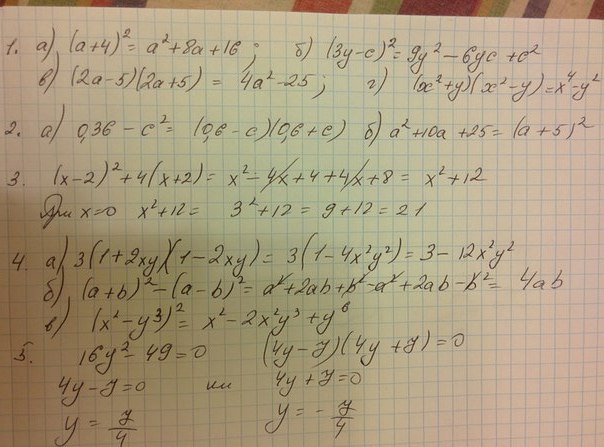 1. а) (a+4)² = a²+8a+16; б) (3y-c)² = 9y²-6yc+c²
в) (2a-5)(2a+5) = 4a²-25; г) (x²+y)(x²-y)=x⁴-y²
2. а) 0,36-c² = (0,6-c)(0,6+c) б) a²+10a+25=(a+5)²
3. (x-2)²+4(x+2)= x²-4x+4+4x+8= x²+12
При x=0 x²+12= 3²+12=9+12=21
4. а) 3(1+2xy)(1-2xy)= 3(1-4x²y²)=3-12x²y²
б) (a+b)²-(a-b)²= a²+2ab+b²-a²+2ab-b²= 4ab
в) (x²-y³)²= x²-2x²y³+y⁶
5. 16y²-49=0 (4y-7)(4y+7)=0
4y-7=0 или 4y+7=0
y = 7/4 y = -7/4